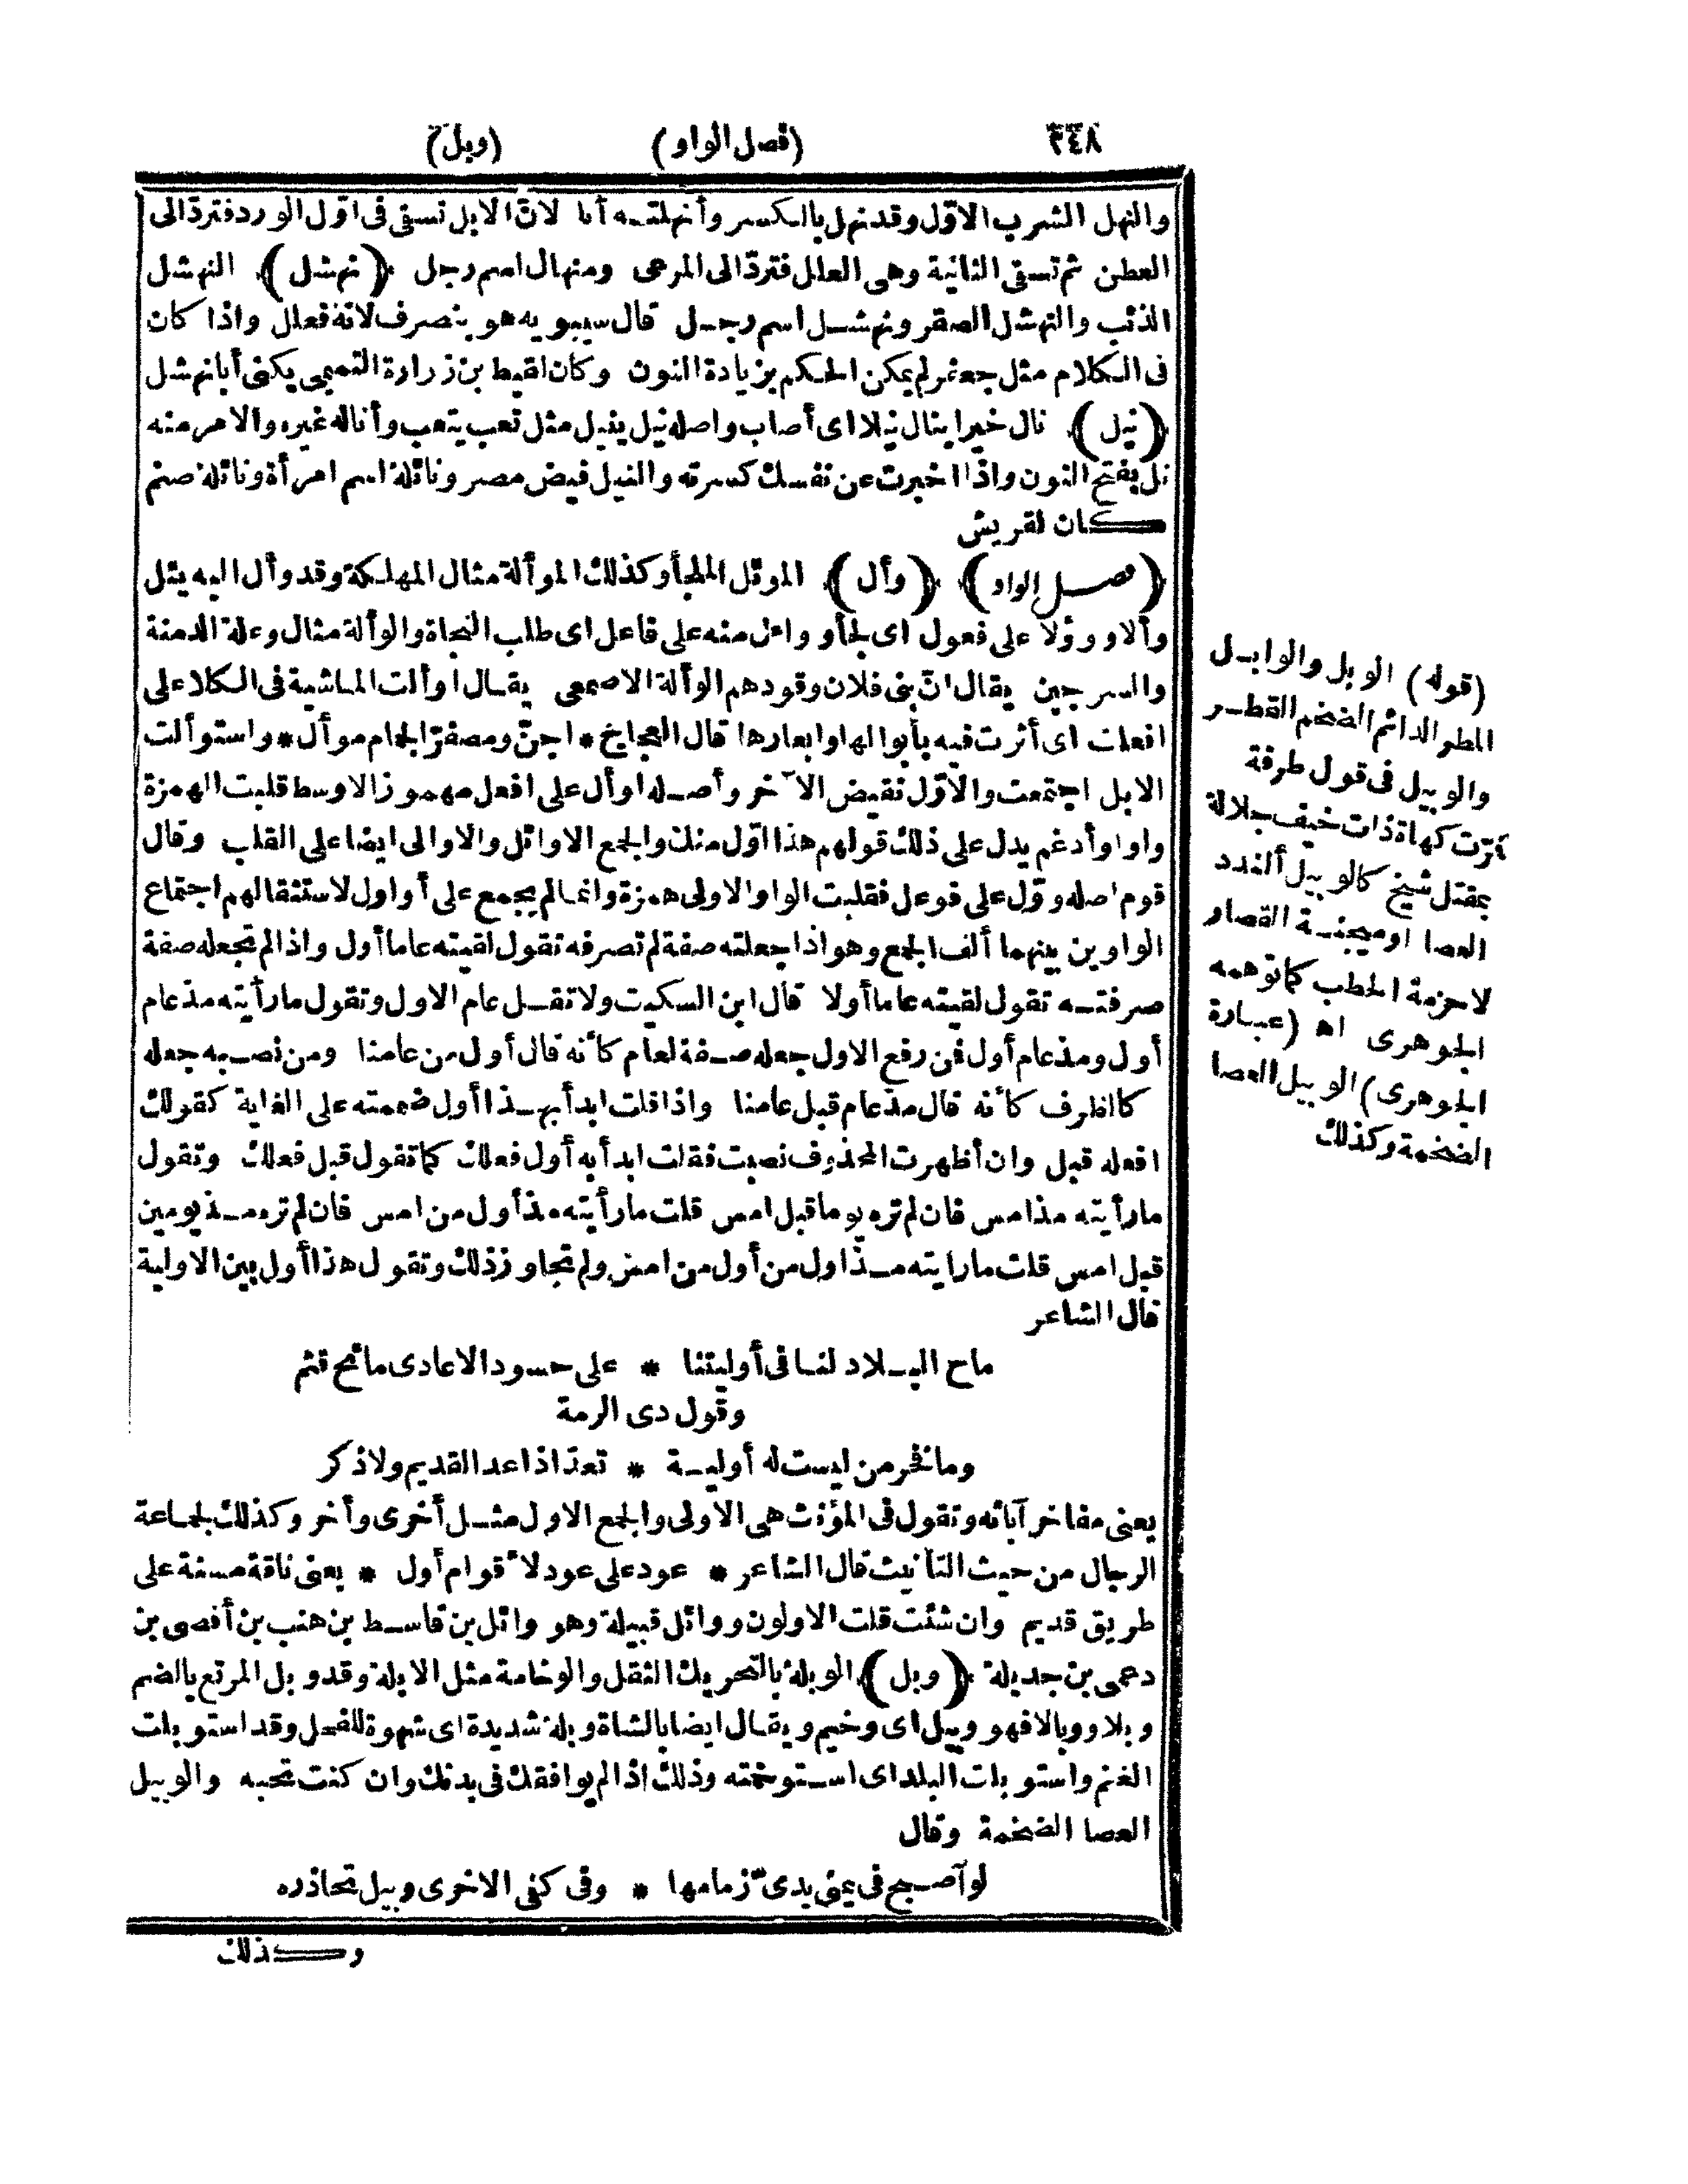 ٣٤٨ (فصل الواو) (وبل)
والنهل الشرب الاوّل وقد نهل بالكسر وأنهلته أنا لانّ الابل تسقى فى اوّل الورد فتردّ الى
العطن ثم تسقى الثانية وهى العلل فتردّ الى المرعى ومنهال اسم رجل (نهشل) النهشل
الذئب والنهشل الصقر ونهشل اسم رجل قال سيبويه هو ينصرف لانه فعلل واذا كان
فى الكلام مثل جعفر لم يمكن الحكم بزيادة النون وكان لقيط بن زرارة التميمى يكنى أبا نهشل
(نيل) نال خيرا ينال نيلا اى أصاب واصله نيل ينيل مثل تعب يتعب وأناله غيره والامر منه
نل بفتح النون واذا اخبرت عن نفسك كسرته والنيل فيض مصر ونائلة اسم امرأة ونائلة صنم
كان لقريش
(فصل الواو) (وأل) الموئل الملجأ وكذلك الموألة مثال المهلكة وقد وأل اليه يئل
وألا وو‌ؤلا على فعول اى لجأ و واءل منه على فاعل اى طلب النجاة والوألة مثال وعلة الدمنة
والسرجين يقال انّ بنى فلان وقودهم الوألة الاصمعى يقال اوألت الماشية فى الكلا على
افعلت اى أثرت فيه بأبوالها وابعارها قال العجاج * اجنّ ومصفرّ الجمام موأل * واستوألت
الابل اجتمعت والاوّل نقيض الآخر وأصله اوأل على افعل مهموز الاوسط قلبت الهمزة
واوا وأدغم يدل على ذلك قولهم هذا اوّل منك والجمع الاوائل والاوالى ايضا على القلب وقال
قوم اصله ووّل على فوعل فقلبت الواو الاولى همزة وانما لم يجمع على أواول لاستثقالهم اجتماع
الواوين بينهما ألف الجمع وهو اذا جعلته صفة لم تصرفه تقول لقيته عاما أول واذا لم تجعله صفة
صرفته تقول لقيته عاما أولا قال ابن السكيت ولا تقل عام الاول وتقول ما رأيته مذ عام
أول ومذ عام أول فمن رفع الاول جعله صفة لعام كأنه قال أول من عامنا ومن نصبه جعله
كالظرف كأنه قال مذ عام قبل عامنا واذا قلت ابدأ بهذا أول ضممته على الغاية كقولك
افعله قبل وان أظهرت المحذوف نصبت فقلت ابدأ به أول فعلك كما تقول قبل فعلك وتقول
ما رأيته مذ امس فان لم تره يوما قبل امس قلت ما رأيته مذ أول من امس فان لم تره مذ يومين
قبل امس قلت ما رايته مذ اول من أول من امس ولم تجاوز ذلك وتقول هذا أول بين الاولية
قال الشاعر
ماح البلاد لنا فى أوليتنا * على حسود الاعادى مائح قثم
وقول ذى الرمة
وما فخر من ليست له أولية * تعدّ اذا عد القديم ولا ذكر
يعنى مفاخر آبائه وتقول فى المؤنث هى الاولى والجمع الاول مثل أخرى وأخر وكذلك لجماعة
الرجال من حيث التأنيث قال الشاعر * عود على عود لأقوام أول * يعنى ناقة مسنة على
طريق قديم وان شئت قلت الاولون ووائل قبيلة وهو وائل بن قاسط بن هنب بن أفصى بن
دعمى بن جديلة (وبل) الوبلة بالتحريك الثقل والوخامة مثل الابلة وقد وبل المرتع بالضم
وبلا ووبالا فهو وبيل اى وخيم ويقال ايضا بالشاة وبلة شديدة اى شهوة للفحل وقد استوبلت
الغنم واستوبلت البلد اى استوخمته وذلك اذا لم يوافقك فى بدنك وان كنت تحبه والوبيل
العصا الضخمة وقال
لو آصبح فى يمنى يدىّ زمامها * وفى كفى الاخرى وبيل تحاذره
وكذلك
(قوله) الوبل والوابل
المطر الدائم الضخم القطر
والوبيل فى قول طرفة
فمرّت كهاة ذات خيف جلالة
عقيلة شيخ كالوبيل ألندد
العصا اوميجنة القصار
لا حزمة الحطب كما توهمه
الجوهرى اه (عبارة
الجوهرى) الوبيل العصا
الضخمة وكذلك